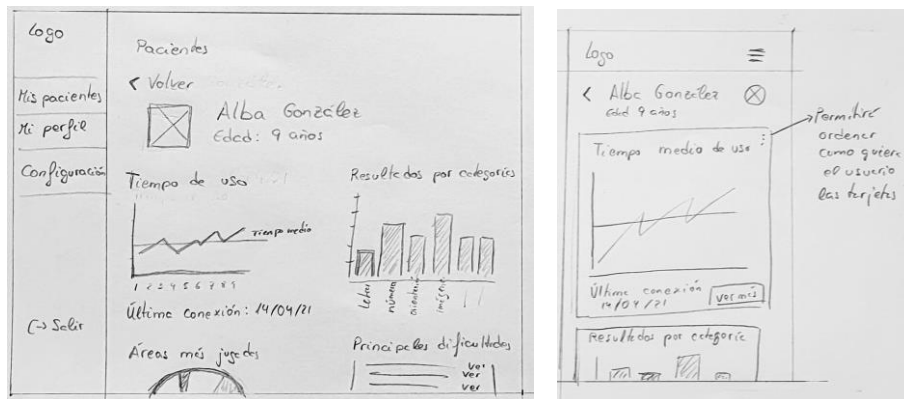 Logo
Mis pacientes
Mi perfil
Configuración
Salir
Pacientes
< Volver
Alba González
Edad: 9 años
Tiempo de uso
Tiempo medio
1 2 3 4 5 6 7 8 9
Última conexión: 14/04/21
Áreas más jugadas
Resultados por categorías
letras
números
Principales dificultades
ver
ver
ver
Logo
< Alba González
Edad 9 años
Tiempo medio de uso
Última conexión
14/04/21
ver más
Resultados por categoría
Permitirá
ordenar
como quiera
el usuario
las tarjetas